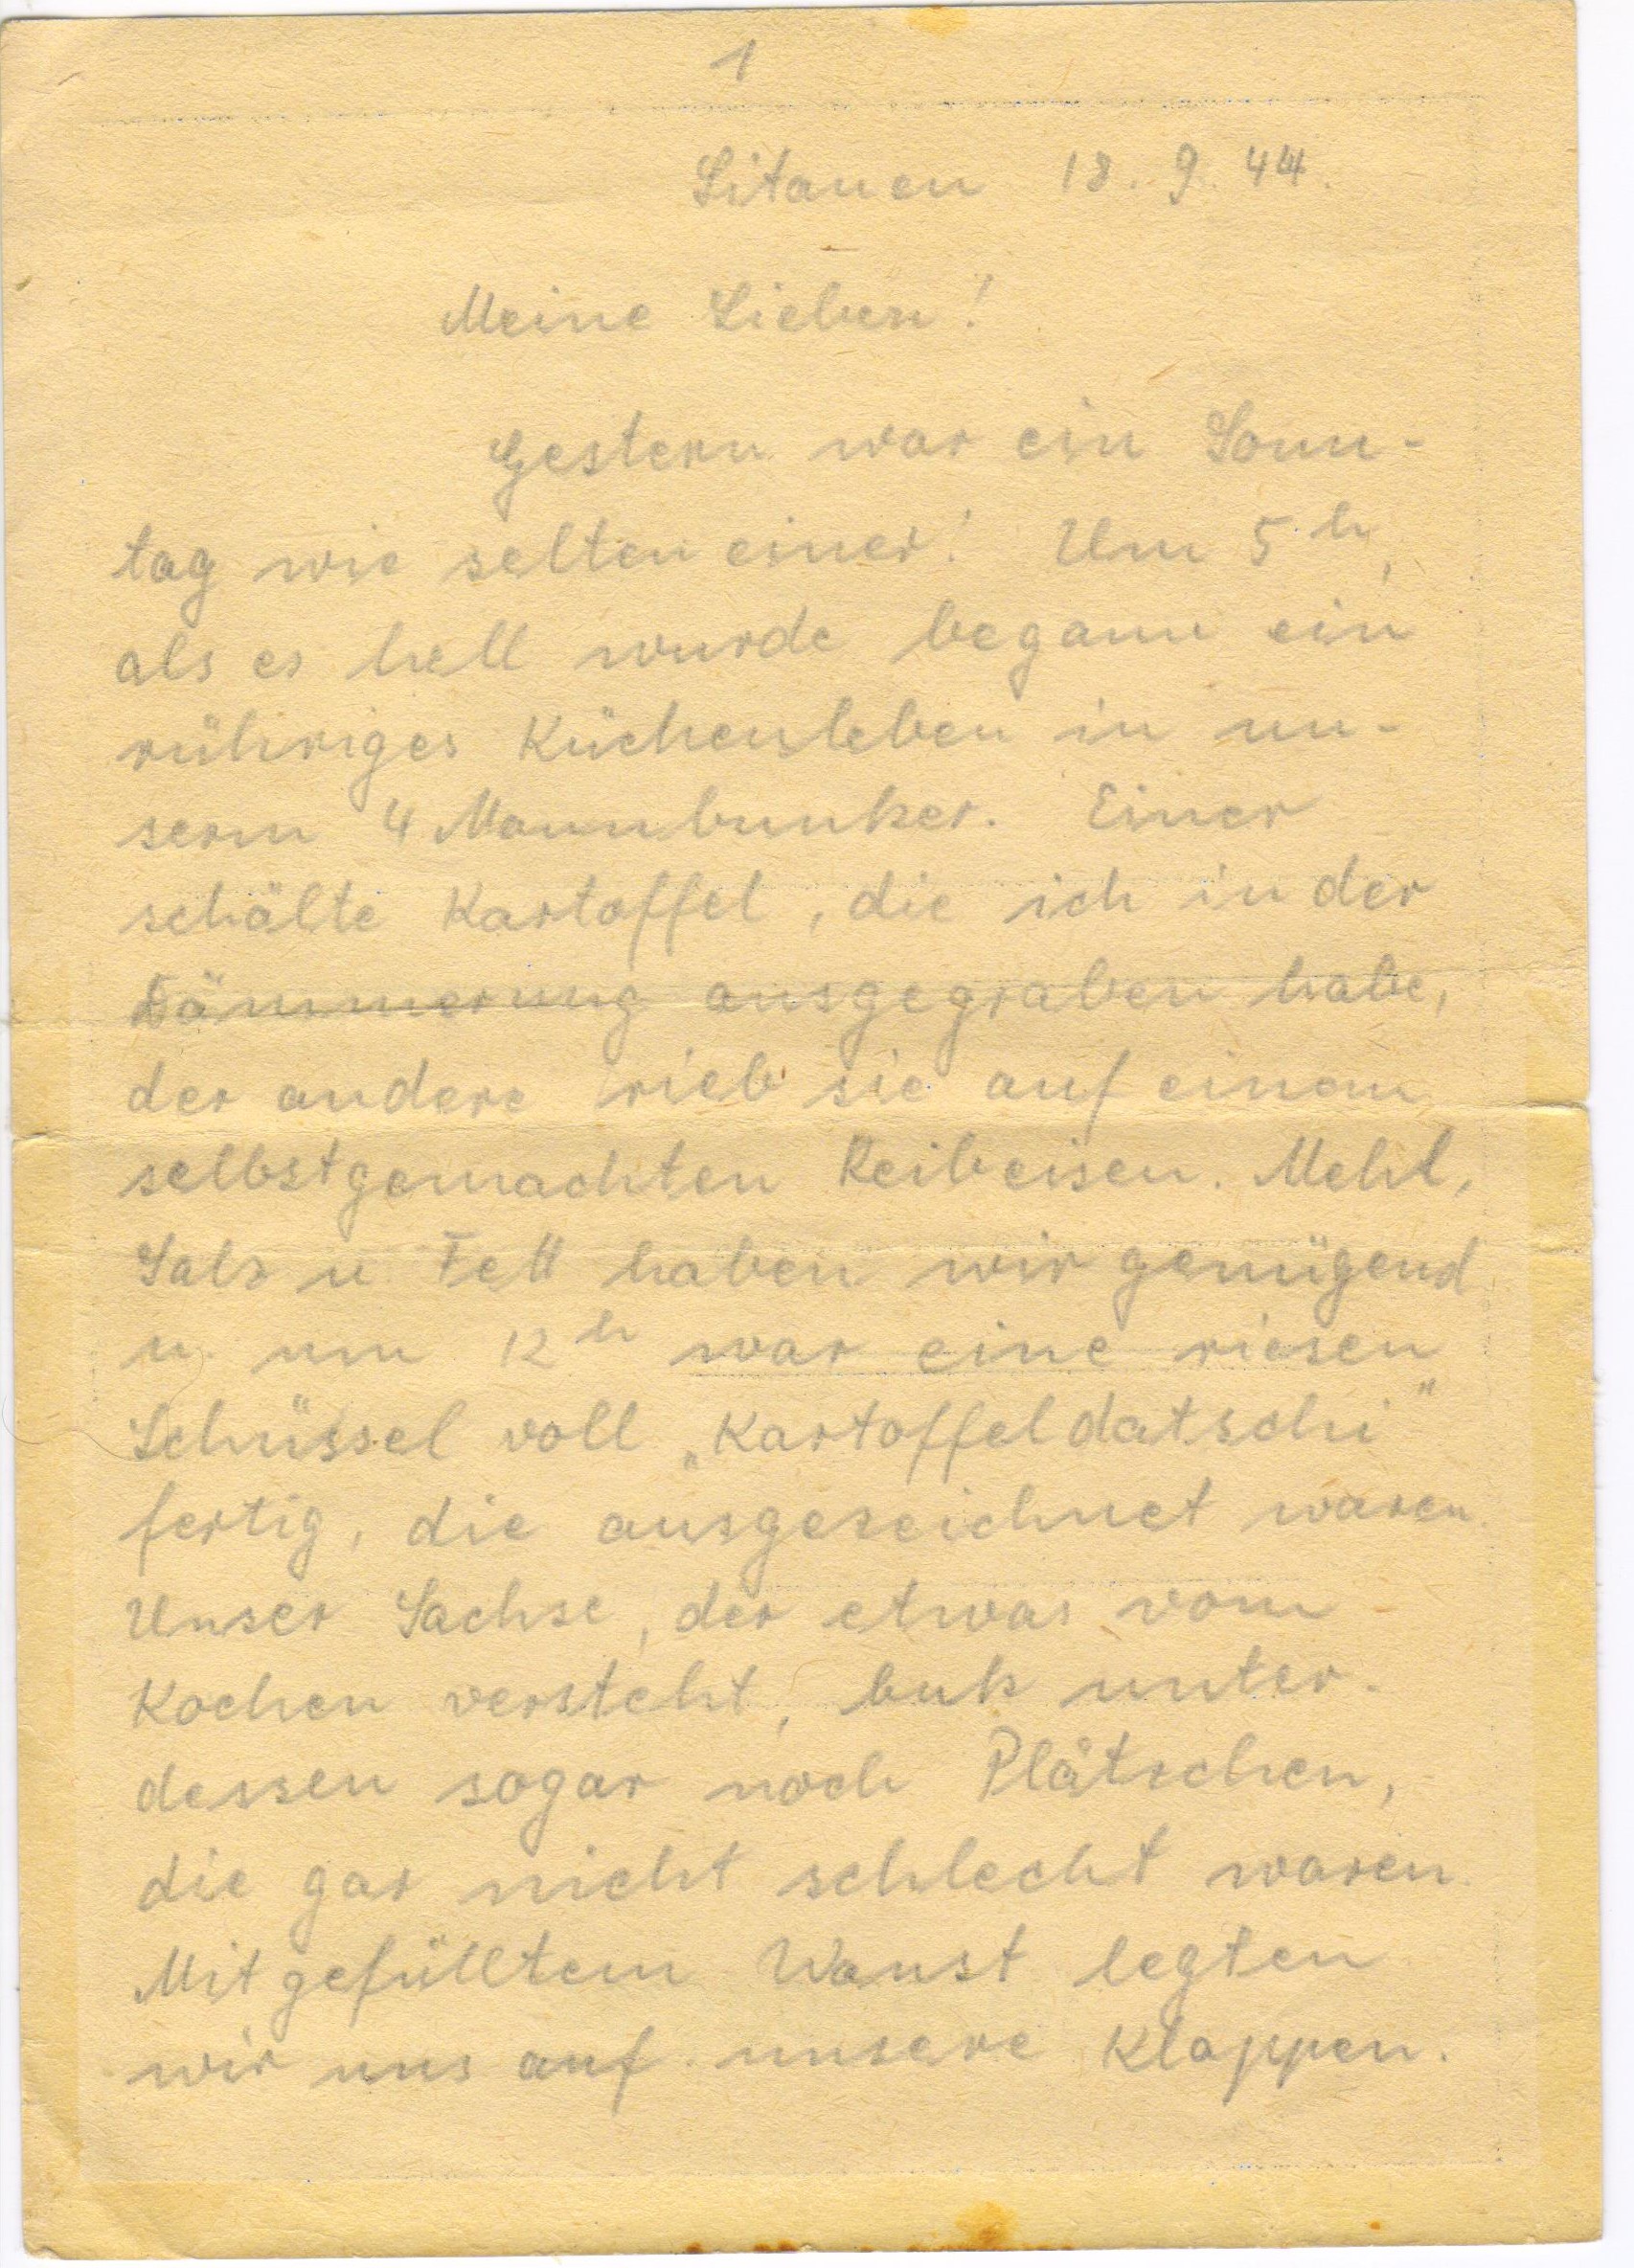 1
Litauen 18. 9. 44.
Meine Lieben!
Gestern war ein Sonn-
tag wie selten einer! Um 5 h,
als es hell wurde begann ein
rühriges Küchenleben in un-
serm 4 Mannbunker. Einer
schälte Kartoffel, die ich in der
Dämmerung ausgegraben habe,
der andere rieb sie auf einem
selbstgemachten Reibeisen. Mehl,
Salz u. Fett haben wir genügend
u. um 12 h war eine riesen
Schüssel voll „Kartoffeldatschi"
fertig, die ausgezeichnet waren.
Unser Sachse, der etwas vom
Kochen versteht, buk unter-
dessen sogar noch Plätzchen,
die gar nicht schlecht waren.
Mit gefülltem Wanst legten
wir uns auf unsere Klappen.